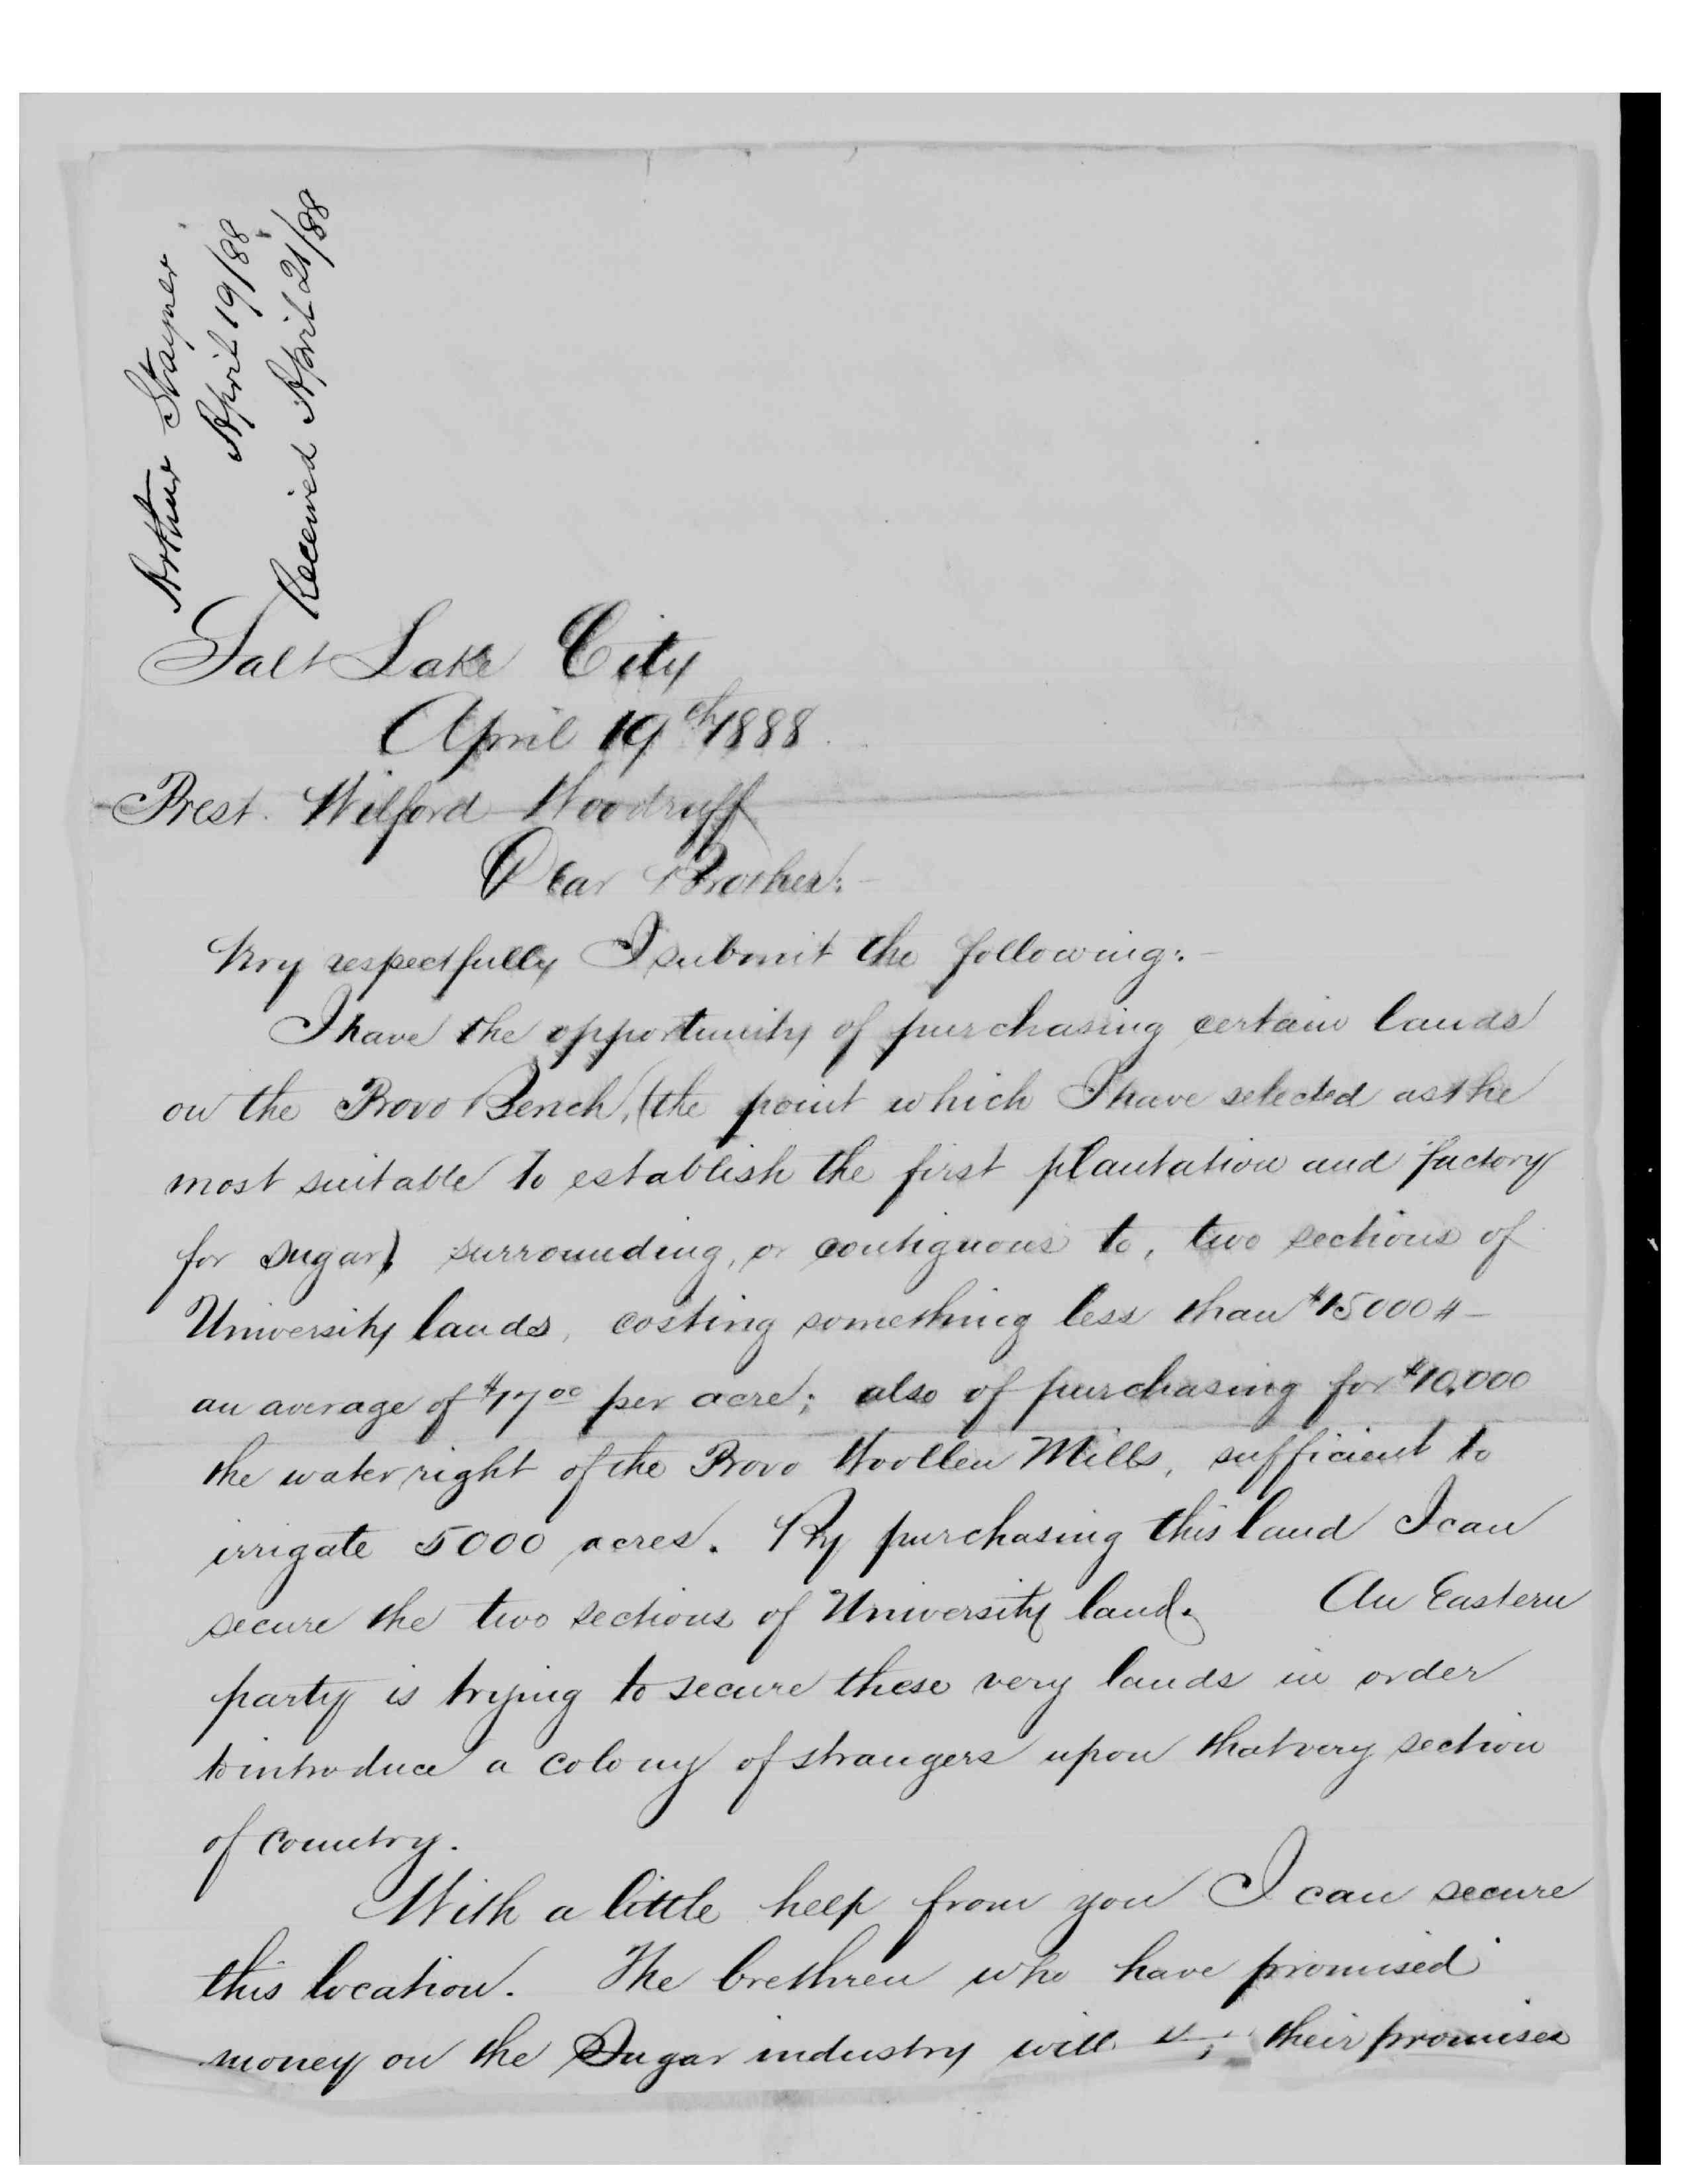 Arthur Stayner
April 19/88
Received April 21/88
Salt Lake City
April 19th 1888
Prest. Wilford Woodruff
Dear Brother:-
Very respectfully I submit the following:-
I have the opportunity of purchasing certain lands
on the Provo Bench, (the point which I have selected as the
most suitable to establish the first plantation and factory
for sugar) surrounding, or contiguous to, two sections of
University lands, costing something less than $15000 #-
an average of $17 00 per acre; also of purchasing for $10,000
the water right of the Provo Woollen Mills, sufficient to
irrigate 5000 acres. By purchasing this land I can
secure the two sections of University land. An Eastern
party is trying to secure these very lands in order
to introduce a colony of strangers upon that very section
of country.
With a little help from you I can secure
this location. The brethren who have promised
money on the Sugar industry will their promises